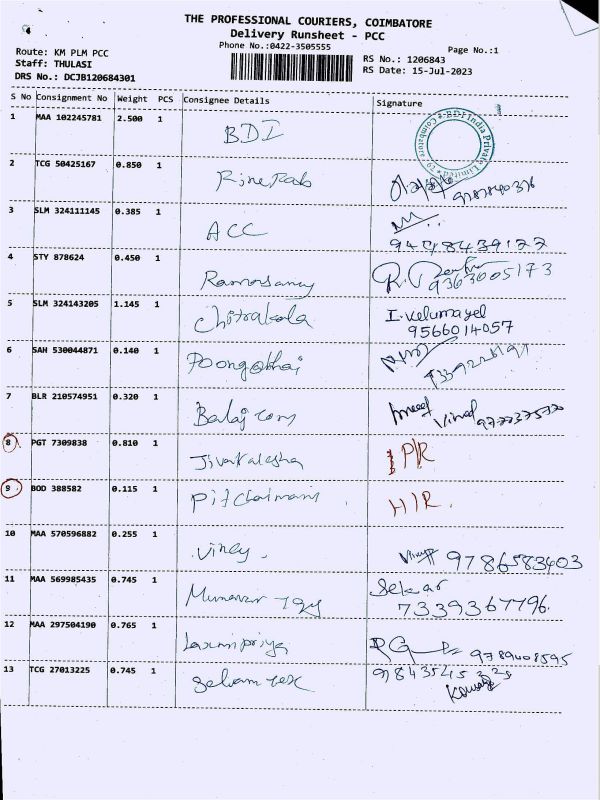 THE PROFESSIONAL COURIERS, COIMBATORE
Delivery Runsheet - PCC
Phone No.:0422-3505555
Page No.:1
Route: KM PLM PCC
Staff: THULASI
DRS No.: DCJB120684301
RS No.: 1206843
RS Date: 15-Jul-2023
S No Consignment No Weight PCS Consignee Details Signature
1 MAA 102245781 2.500 1 BDI BDI India Private Limited Coimbatore
2 TCG 50425167 0.850 1
3 SLM 324111145 0.385 1 ACC
4 STY 878624 0.450 1 Ramasamy 9363005173
5 SLM 324143205 1.145 1 Chitrakala I.Velumayel
9566014057
6 SAH 530044871 0.140 1 Poongothai
7 BLR 210574951 0.320 1 Balaji Vinod
8 PGT 7309838 0.810 1 P/R
9 BOD 388582 0.115 1 H/R.
10 MAA 570596882 0.255 1 Vinay 9786583403
11 MAA 569985435 0.745 1 Sekar
7339367796
12 MAA 297504190 0.765 1 Laxmipriya 9789408595
13 TCG 27013225 0.745 1 Selvam tex